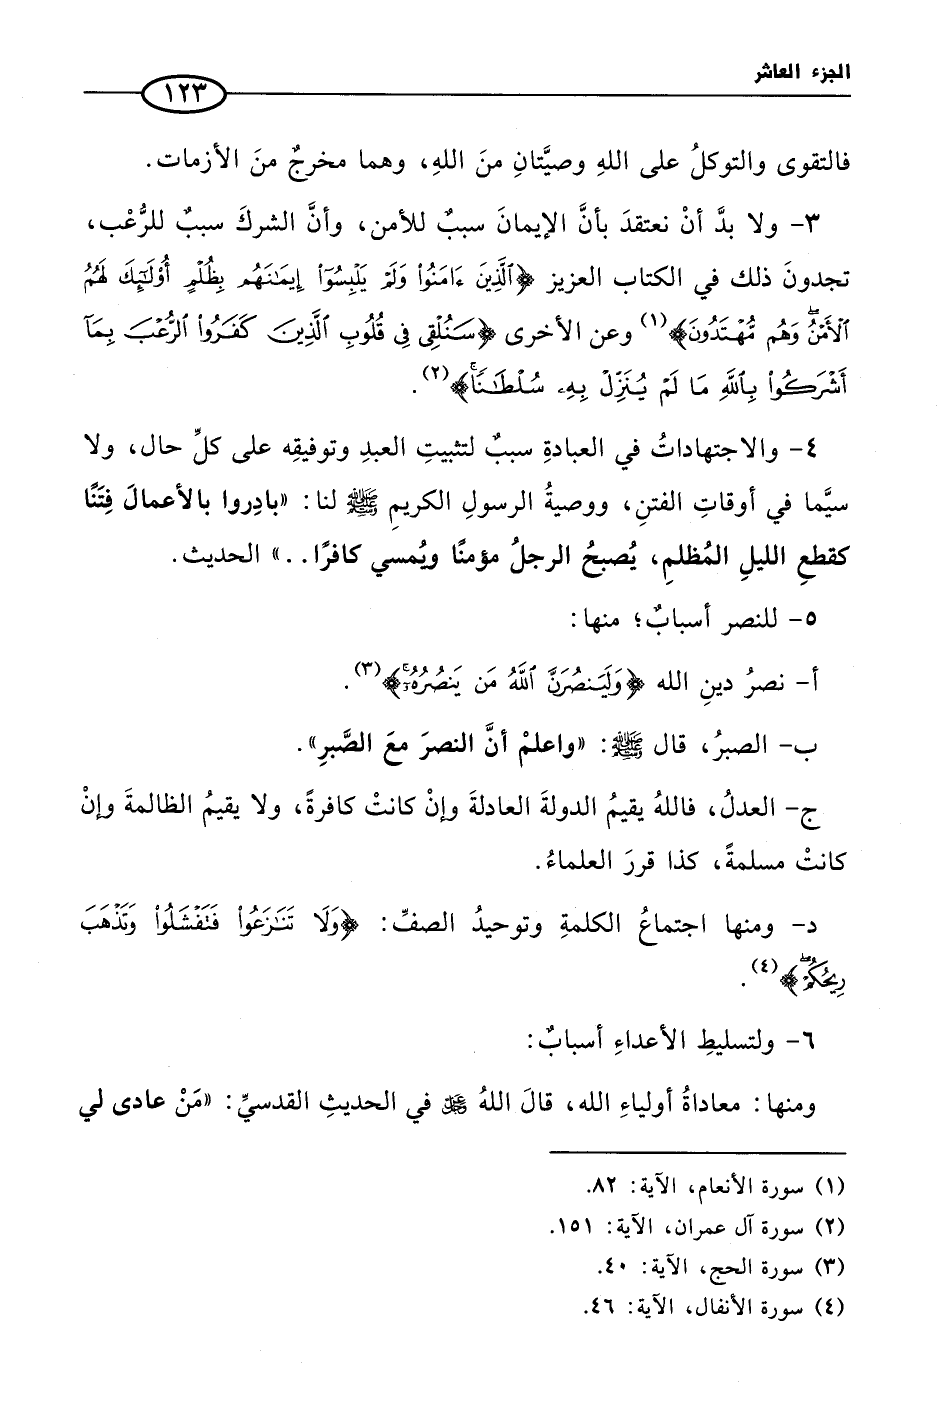 الجزء العاشر
١٢٣
فالتقوى والتوكلُ على اللهِ وصيَّتانِ منَ اللهِ، وهما مخرجٌ منَ الأزمات.
٣- ولا بدَّ أنْ نعتقدَ بأنَّ الإيمانَ سببٌ للأمن، وأنَّ الشركَ سببٌ للرُّعْب،
تجدونَ ذلك في الكتاب العزيز ﴿ٱلَّذِينَ ءَامَنُوا۟ وَلَمْ يَلْبِسُوٓا۟ إِيمَـٰنَهُم بِظُلْمٍ أُو۟لَـٰٓئِكَ لَهُمُ
ٱلْأَمْنُ ۖ وَهُم مُّهْتَدُونَ﴾(١) وعن الأخرى ﴿سَنُلْقِى فِى قُلُوبِ ٱلَّذِينَ كَفَرُوا۟ ٱلرُّعْبَ بِمَآ
أَشْرَكُوا۟ بِٱللَّهِ مَا لَمْ يُنَزِّلْ بِهِۦ سُلْطَـٰنًا ۖ﴾(٢).
٤- والاجتهاداتُ في العبادةِ سببٌ لتثبيتِ العبدِ وتوفيقِه على كلِّ حال، ولا
سيَّما في أوقاتِ الفتنِ، ووصيةُ الرسولِ الكريمِ ﷺ لنا: «بادِروا بالأعمالَ فِتَنًا
كقطعِ الليلِ المُظلمِ، يُصبحُ الرجلُ مؤمنًا ويُمسي كافرًا..» الحديث.
٥- للنصر أسبابٌ؛ منها:
أ- نصرُ دينِ الله ﴿وَلَيَنصُرَنَّ ٱللَّهُ مَن يَنصُرُهُۥٓ ۚ﴾(٣).
ب- الصبرُ، قال ﷺ: «واعلمْ أنَّ النصرَ معَ الصَّبرِ».
ج- العدلُ، فاللهُ يقيمُ الدولةَ العادلةَ وإنْ كانتْ كافرةً، ولا يقيمُ الظالمةَ وإنْ
كانتْ مسلمةً، كذا قررَ العلماءُ.
د- ومنها اجتماعُ الكلمةِ وتوحيدُ الصفِّ: ﴿وَلَا تَنَـٰزَعُوا۟ فَتَفْشَلُوا۟ وَتَذْهَبَ
رِيحُكُمْ ۖ﴾(٤).
٦- ولتسليطِ الأعداءِ أسبابٌ:
ومنها: معاداةُ أولياءِ الله، قالَ اللهُ ﷻ في الحديثِ القدسيِّ: «مَنْ عادى لي
(١) سورة الأنعام، الآية: ٨٢.
(٢) سورة آل عمران، الآية: ١٥١.
(٣) سورة الحج، الآية: ٤٠.
(٤) سورة الأنفال، الآية: ٤٦.